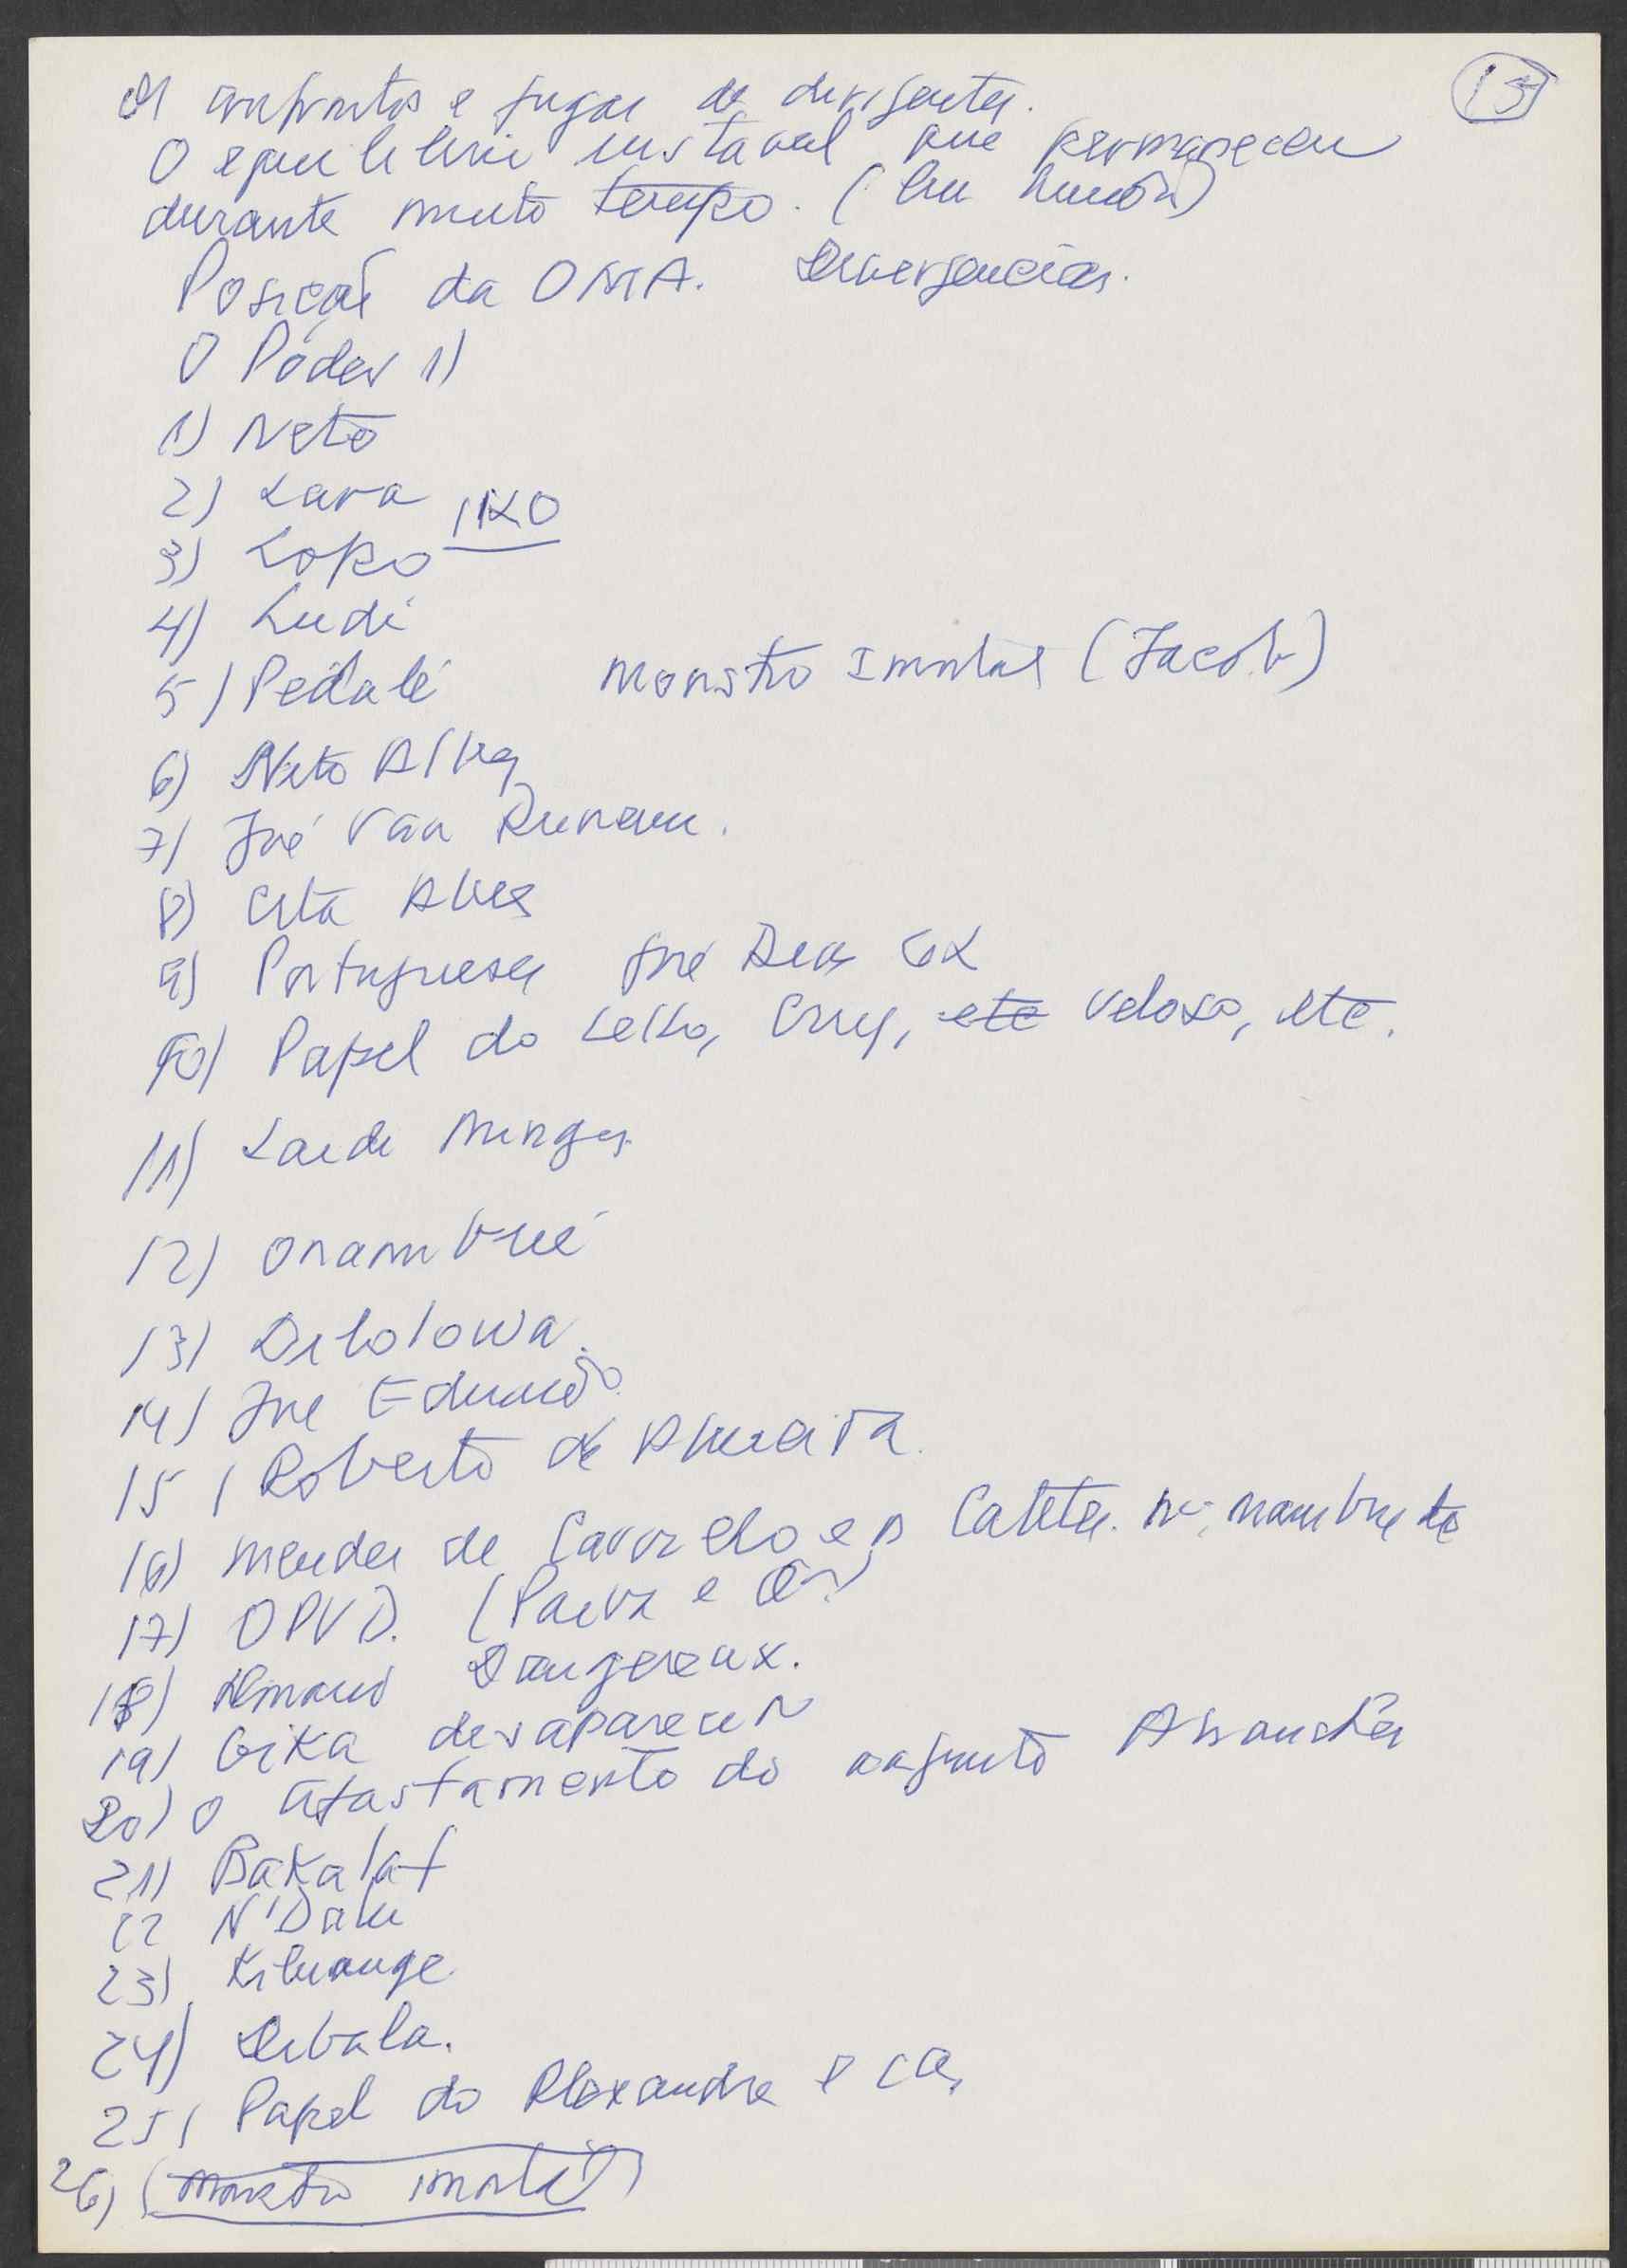 13
Os confrontos e fugas de dirigentes.
O equilibrio instavel que permaneceu
durante muito tempo. (Lu
Posição da OMA. Divergencias.
O Poder 1)
1) Neto
2) Lara
IKO
3) Lopo
4) Ludi
5) Pedalé Monstro Imortal (Jacob)
6) Nito Alves
7) José Van Dunem.
8) Cita Alves
9) Portugueses José Dias
10) Papel do Lello, Cruz, etc Veloso, etc.
11) Laide Mingas
12) Onambwe
13) Dilolowa.
14) José Eduardo.
15) Roberto de Almeida.
16) Mendes de Carvalho e A Catete. Nambuete
17) OPVD. (Paiva e
18) Dangereux.
19) Gika desapareceu
20) O afastamento do conjunto
21) Bakalaf
22 N'Dalu
23) Kiluange.
24) Dibala.
25) Papel do Alexandre e Ca,
26) (Monstro imortal)